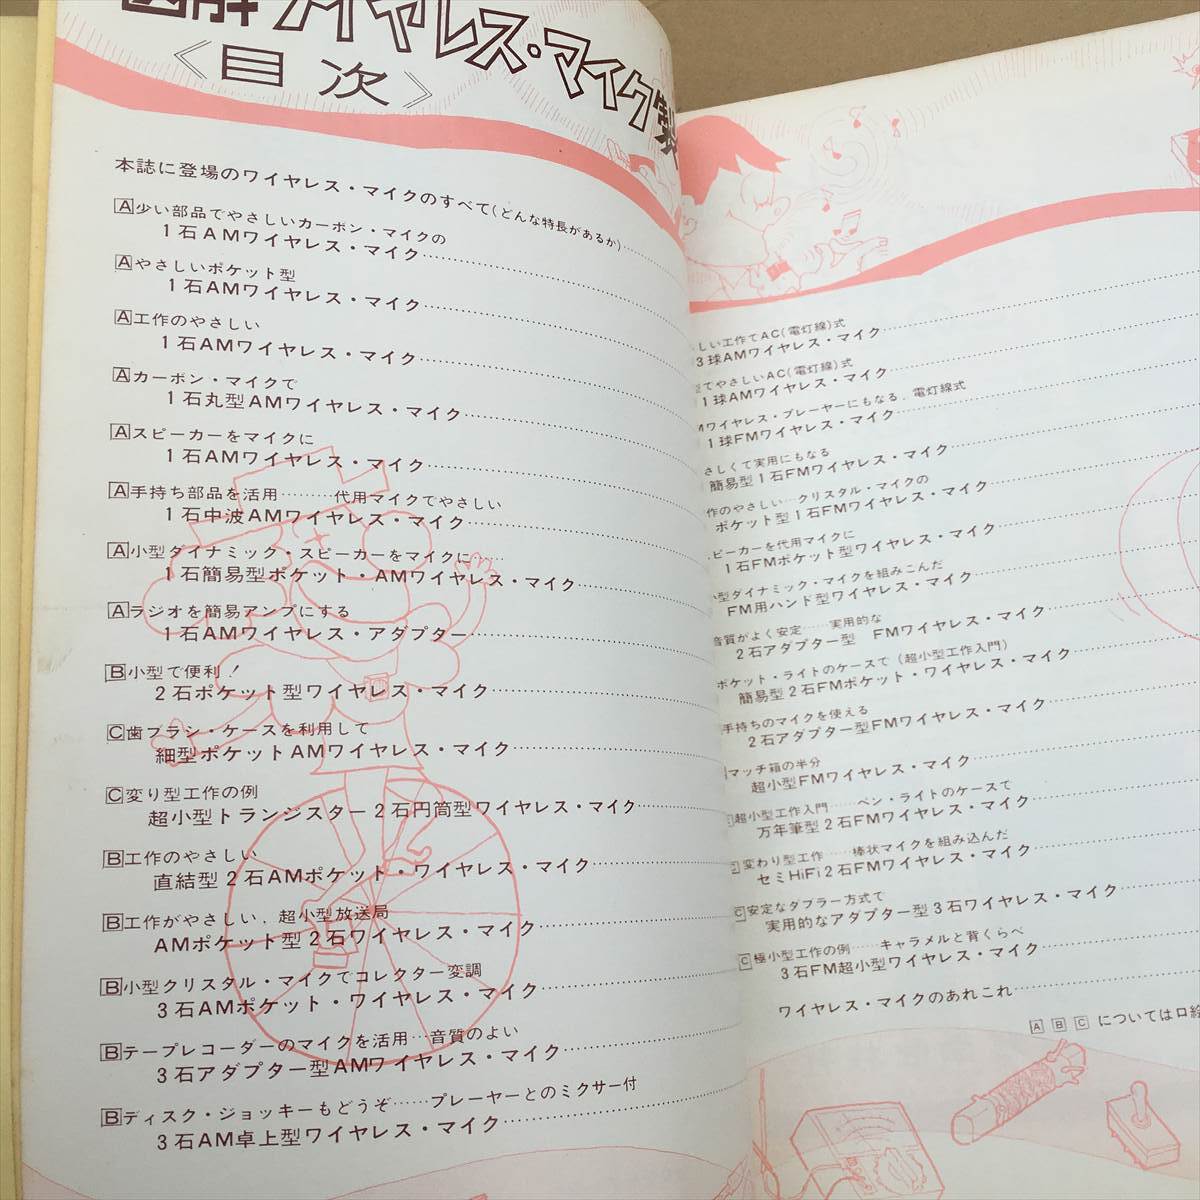 図解ワイヤレス・マイク製
〈目次〉
本誌に登場のワイヤレス・マイクのすべて(どんな特長があるか)……
A少い部品でやさしいカーボン・マイクの
1石AMワイヤレス・マイク……
Aやさしいポケット型
1石AMワイヤレス・マイク……
A工作のやさしい
1石AMワイヤレス・マイク……
Aカーボン・マイクで
1石丸型AMワイヤレス・マイク……
Aスピーカーをマイクに
1石AMワイヤレス・マイク……
A手持ち部品を活用………代用マイクでやさしい
1石中波AMワイヤレス・マイク……
A小型ダイナミック・スピーカーをマイクに……
1石簡易型ポケット・AMワイヤレス・マイク……
Aラジオを簡易アンプにする
1石AMワイヤレス・アダプター……
B小型で便利!
2石ポケット型ワイヤレス・マイク……
C歯ブラシ・ケースを利用して
細型ポケットAMワイヤレス・マイク……
C変り型工作の例
超小型トランジスター2石円筒型ワイヤレス・マイク……
B工作のやさしい
直結型2石AMポケット・ワイヤレス・マイク……
B工作がやさしい、超小型放送局
AMポケット型2石ワイヤレス・マイク……
B小型クリスタル・マイクでコレクター変調
3石AMポケット・ワイヤレス・マイク……
Bテープレコーダーのマイクを活用…音質のよい
3石アダプター型AMワイヤレス・マイク……
Bディスク・ジョッキーもどうぞ……プレーヤーとのミクサー付
3石AM卓上型ワイヤレス・マイク……
しい工作でAC(電灯線)式
3球AMワイヤレス・マイク……
てやさしいAC(電灯線)式
1球AMワイヤレス・マイク……
Mワイヤレス・プレーヤーにもなる、電灯線式
1球FMワイヤレス・マイク……
さしくて実用にもなる
簡易型1石FMワイヤレス・マイク……
作のやさしい…クリスタル・マイクの
ポケット型1石FMワイヤレス・マイク……
ピーカーを代用マイクに
1石FMポケット型ワイヤレス・マイク……
小型ダイナミック・マイクを組みこんだ
FM用ハンド型ワイヤレス・マイク……
音質がよく安定……実用的な
2石アダプター型 FMワイヤレス・マイク……
ポケット・ライトのケースで(超小型工作入門)
簡易型2石FMポケット・ワイヤレス・マイク……
手持ちのマイクを使える
2石アダプター型FMワイヤレス・マイク……
マッチ箱の半分
超小型FMワイヤレス・マイク……
超小型工作入門……ペン・ライトのケースで
万年筆型2石FMワイヤレス・マイク……
変わり型工作……棒状マイクを組み込んだ
セミHiFi2石FMワイヤレス・マイク……
C安定なダブラー方式で
実用的なアダプター型3石ワイヤレス・マイク……
C極小型工作の例……キャラメルと背くらべ
3石FM超小型ワイヤレス・マイク……
ワイヤレス・マイクのあれこれ……
A B Cについては口絵